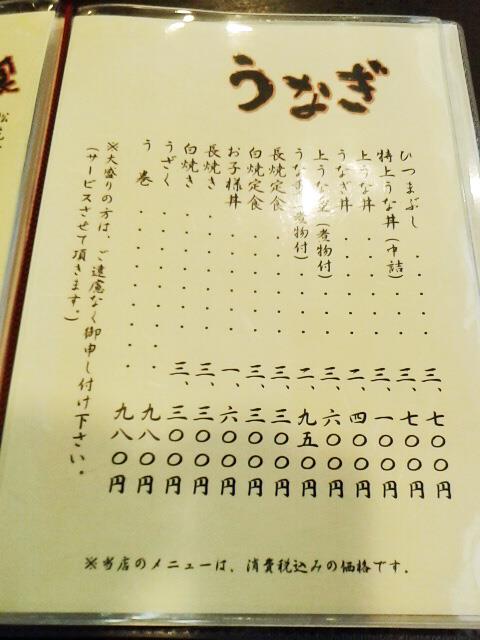 うなぎ
ひつまぶし・・・・三、七〇〇円
特上うな丼(中詰)・・三、七〇〇円
上うな丼・・・・・三、一〇〇円
うなぎ丼・・・・・二、四〇〇円
上うな重(煮物付)・・三、六〇〇円
うな重(煮物付)・・・二、九五〇円
長焼定食・・・・・三、三〇〇円
白焼定食・・・・・三、三〇〇円
お子様丼・・・・・一、六〇〇円
長焼き・・・・・・三、三〇〇円
白焼き・・・・・・三、三〇〇円
うざく・・・・・・九八〇円
う巻・・・・・・・九八〇円
※大盛りの方は、ご遠慮なく御申し付け下さい。
(サービスさせて頂きます。)
※当店のメニューは、消費税込みの価格です。